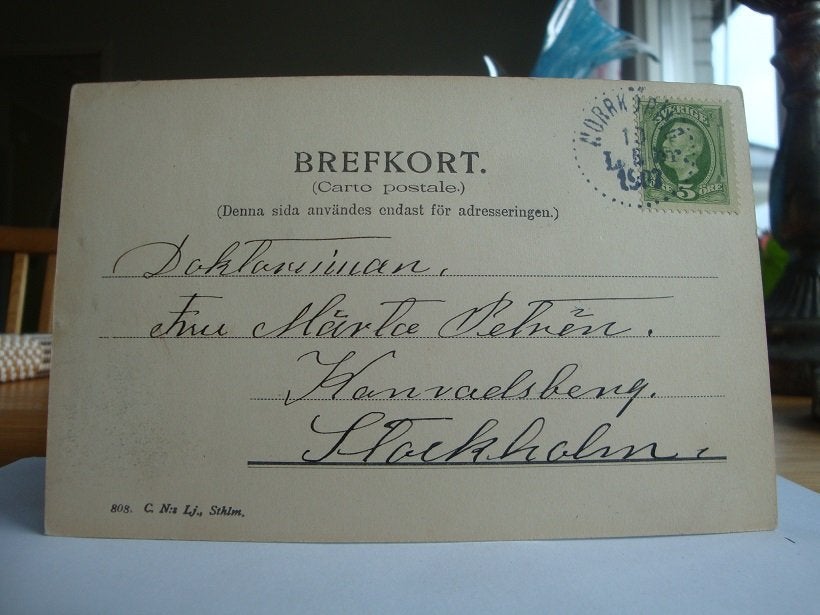 BREFKORT.
(Carte postale.)
(Denna sida användes endast för adresseringen.)
NORRKÖPING
1901
SVERIGE
5 ÖRE
Doktorinnan,
Fru Märta Petrén.
Konradsberg.
Stockholm.
808. C. N:s Lj., Sthlm.